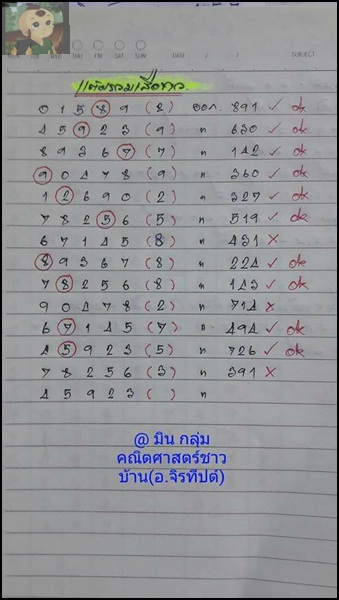 SUN MON TUE WED THU FRI SAT DATE / / SUBJECT
แต้มรวมเสือขาว
0 1 5 8 9 (8) ออก. 891 ✓ ok
4 5 9 2 3 (9) " 630 ✓ ok
8 9 3 6 7 (7) " 142 ✓ ok
9 0 4 7 8 (9) " 360 ✓ ok
1 2 6 9 0 (2) " 327 ✓ ok
7 8 2 5 6 (5) " 519 ✓ ok
6 7 1 4 5 (8) " 431 ×
8 9 3 6 7 (8) " 224 ✓ ok
7 8 2 5 6 (8) " 143 ✓ ok
9 0 4 7 8 (2) " 714 ×
6 7 1 4 5 (7) " 494 ✓ ok
4 5 9 2 3 (5) " 726 ✓ ok
7 8 2 5 6 (3) " 391 ×
4 5 9 2 3 ( ) "
@ มิน กลุ่ม
คณิตศาสตร์ชาว
บ้าน(อ.จิรทีปต์)